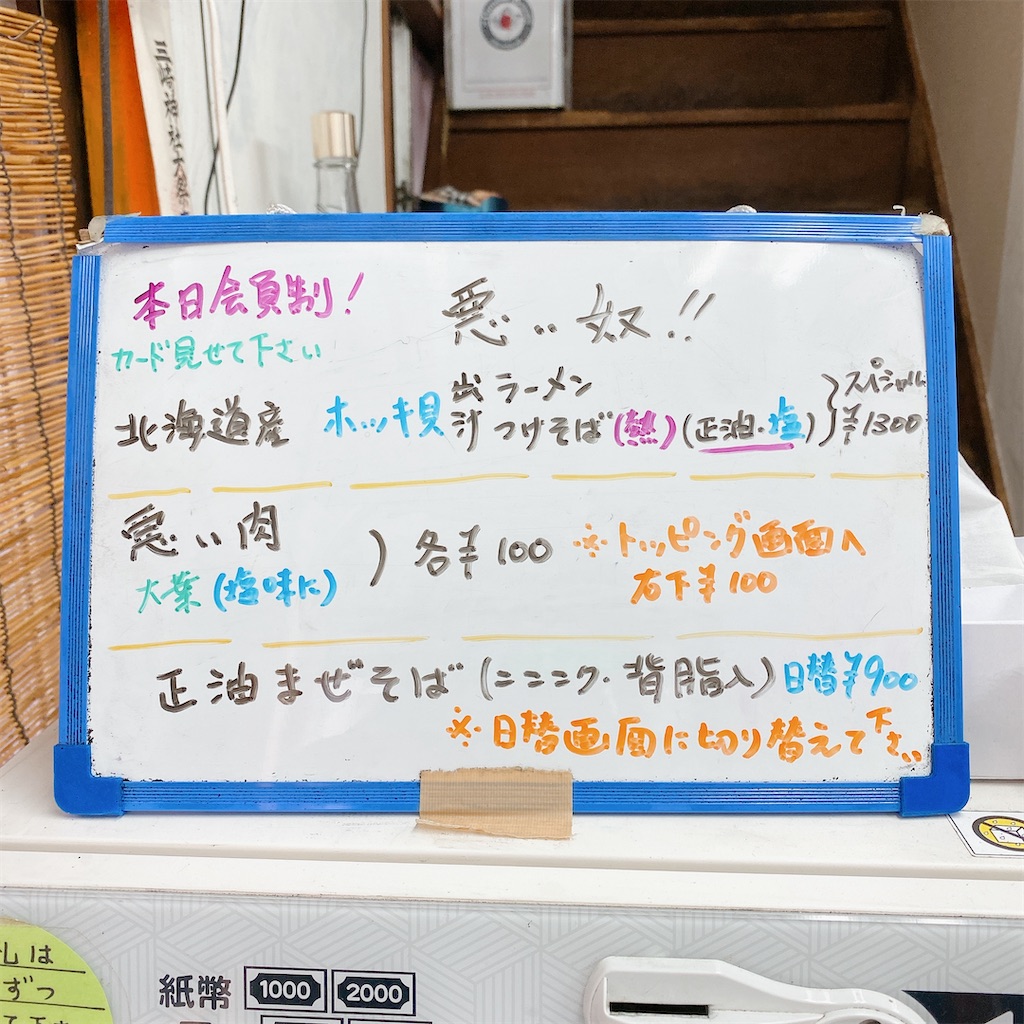 本日会員制!
悪い奴!!
カード見せて下さい
北海道産 ホッキ貝 出汁 ラーメン つけそば(熱)(正油・塩) スペシャル ¥1300
悪い肉
大葉(塩味に)
各¥100
※トッピング画面へ
右下¥100
正油まぜそば(ニニニク・背脂入)日替¥900
※日替画面に切り替えて下さい
紙幣 1000 2000
は
ずつ